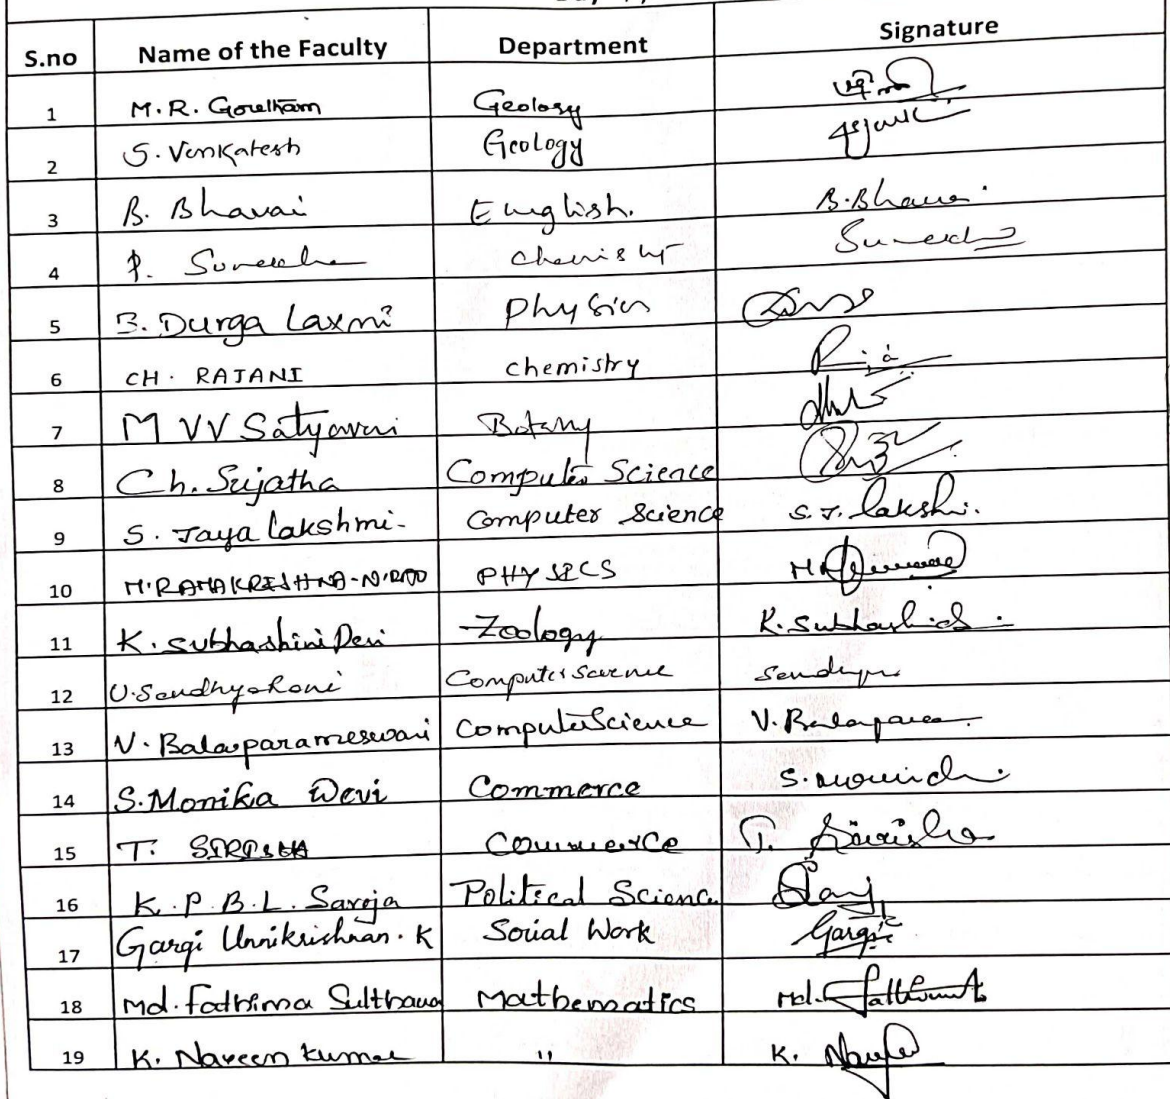 S.no Name of the Faculty Department Signature
1 M.R. Goutham Geology
2 S. Venkatesh Geology
3 B. Bhavai English. B. Bhavai
4 P. Sureekha Chemistry
5 B. Durga Laxmi Physics
6 CH. RAJANI chemistry
7 M VV Satyavani Botany
8 Ch. Sujatha Computer Science
9 S. Jaya lakshmi- Computer Science S. J. lakshi.
10 M.RAMAKRISHNA-N.RAO PHYSICS
11 K. Subhashini Devi Zoology K. Subhashi
12 U.Sandhya Rani Computer science Sandhya
13 V. Balaparameswari Computer Science V. Balapara
14 S.Monika Devi Commerce
15 T. SIRISHA Commerce T. Sirisha
16 K.P.B.L. Saroja Political Science
17 Gargi Unnikrishnan.K Social Work Gargi
18 Md.Fathima Sulthana Mathematics Md. Fathima
19 K. Naveen kumar " K.